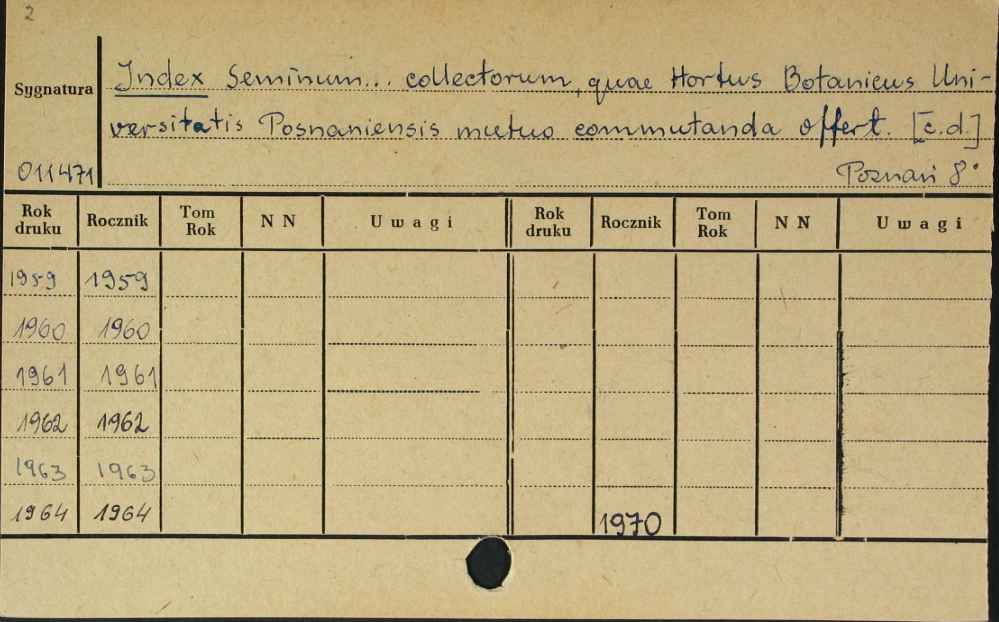 2
Index Seminum... collectorum, quae Hortus Botanicus Uni-
Sygnatura
versitatis Posnaniensis mutuo commutanda offert. [c.d.]
011471 Poznań 8°
Rok druku Rocznik Tom Rok NN Uwagi Rok druku Rocznik Tom Rok NN Uwagi
1959 1959
1960 1960
1961 1961
1962 1962
1963 1963
1964 1964 1970